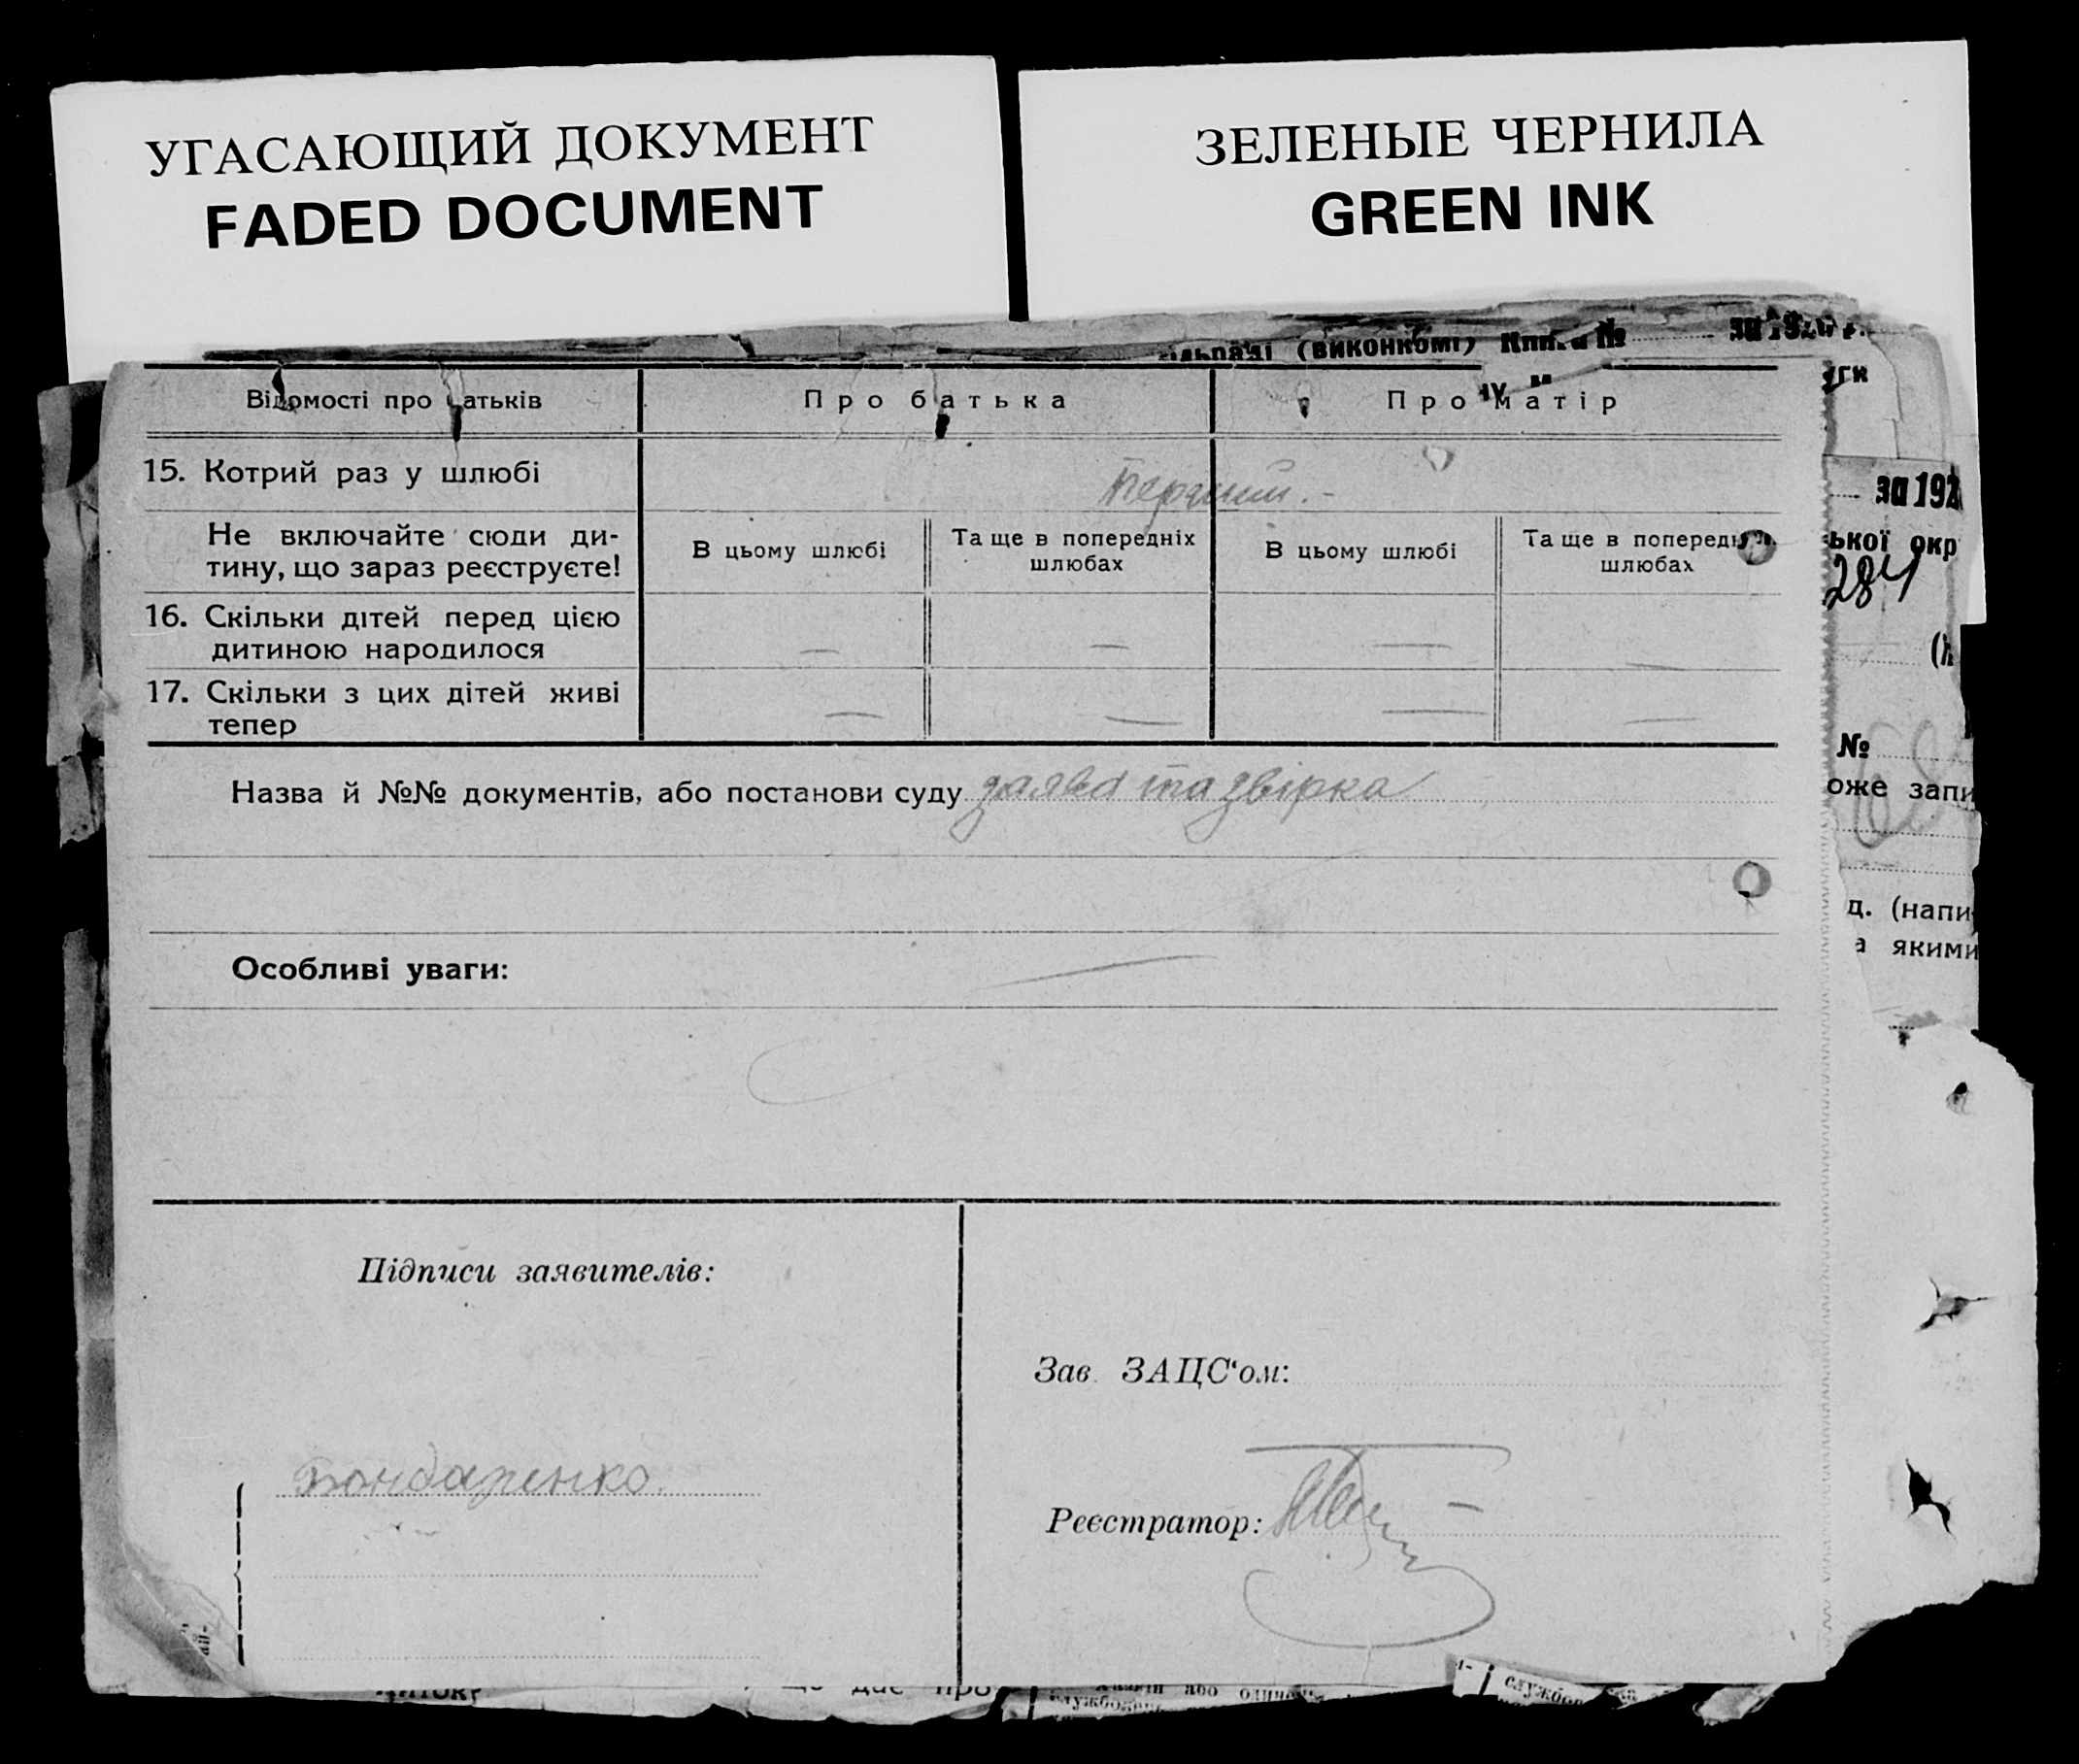 УГАСАЮЩИЙ ДОКУМЕНТ
FADED DOCUMENT
ЗЕЛЕНЫЕ ЧЕРНИЛА
GREEN INK
(виконкомі) №
за 192
Відомості про батьків
Про батька
Про матір
15. Котрий раз у шлюбі
перший. -
Не включайте сюди ди-
тину, що зараз реєструєте!
В цьому шлюбі
Та ще в попередніх
шлюбах
В цьому шлюбі
Та ще в попередніх
шлюбах
16. Скільки дітей перед цією
дитиною народилося
— — — —
17. Скільки з цих дітей живі
тепер
— — — —
Назва й №№ документів, або постанови суду заява та звірка
Особливі уваги: —
Підписи заявителів:
Бондаренко.
Зав. ЗАЦС'ом:
Реєстратор:
за 192
ької окр
284
№
оже запи
д. (напи
а якими